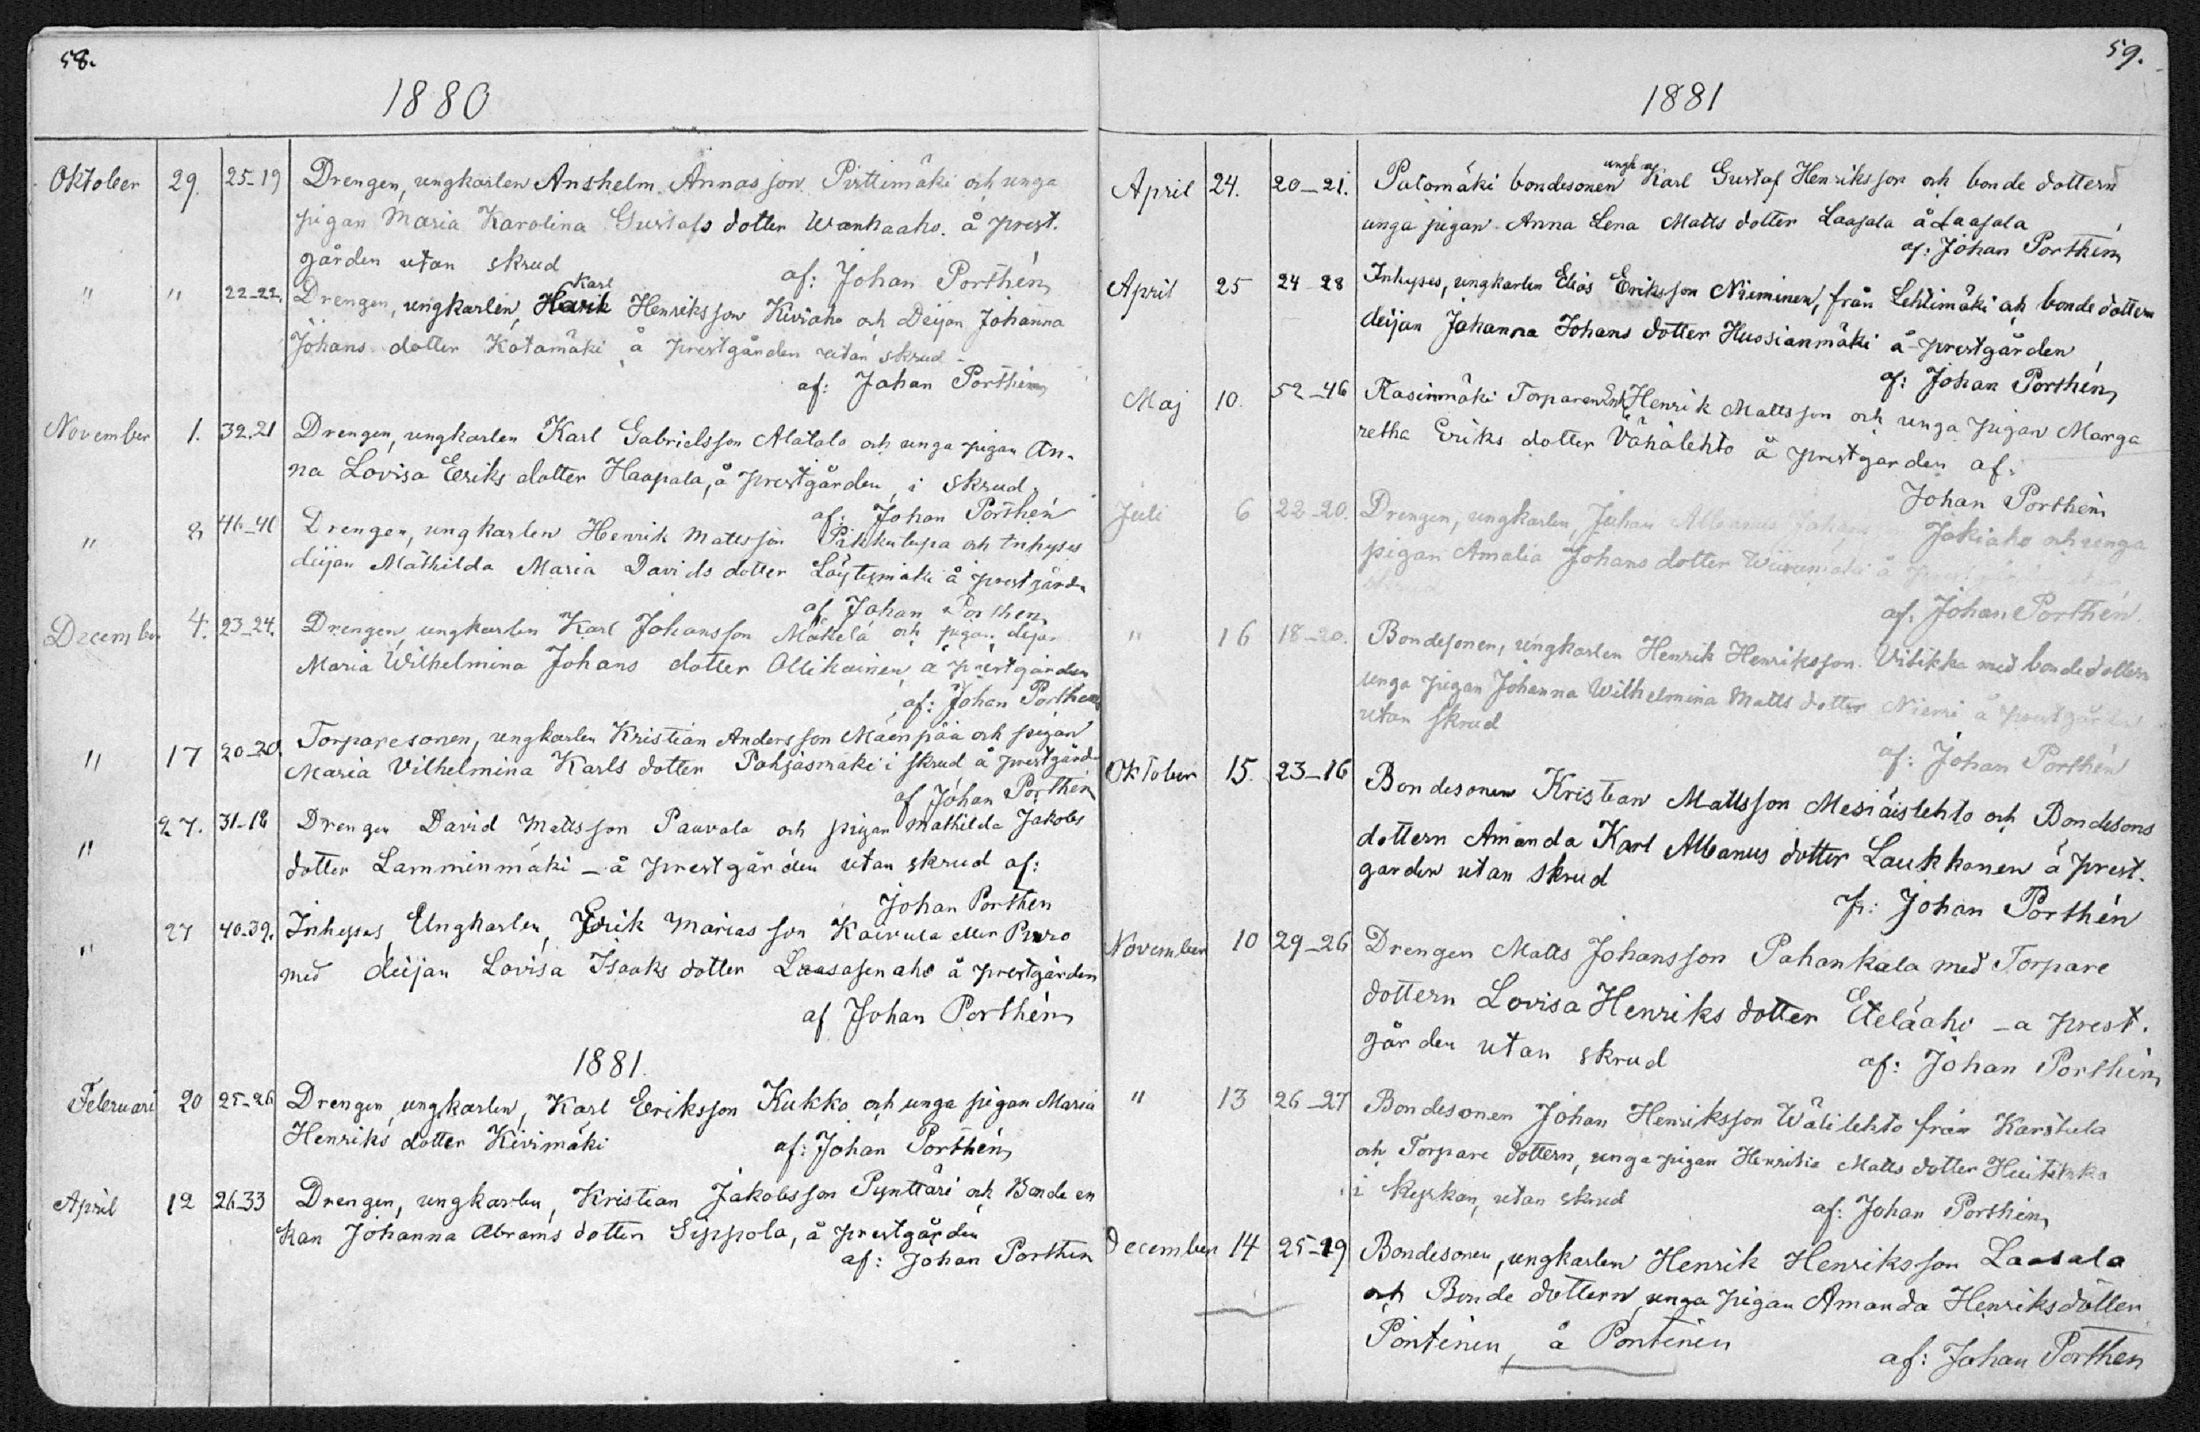 58.
1880
Oktober 29. 25-19 Drengen, ungkarlen Anshelm Annasson Pirttimäki och unga
pigan Maria Karolina Gustafs dotter Wanhaaho. å prest.
gården utan skrud
af: Johan Porthén
" " 22-22. Drengen, ungkarlen, Karl Henriksson Kiviaho och Deijan Johanna
Johans dotter Kotamäki å prestgården utan skrud
af: Johan Porthén
November 1. 32.21 Drengen, ungkarlen Karl Gabrielsson Alatalo och unga pigan An-
na Lovisa Eriks dotter Haapala, å prestgården, i skrud.
af: Johan Porthén
" 8 46-40 Drengen, ungkarlen Henrik Mattsson Pikkutupa och Inhyses
deijan Mathilda Maria Davids dotter Löytymäki å prestgårdn
af Johan Porthen
December 4. 23-24. Drengen, ungkarlen Karl Johansson Mäkelä och pigan dejan
Maria Wilhelmina Johans dotter Ollikainen å prestgården
af: Johan Porthen
" 17 20-20. Torparesonen, ungkarlen Kristian Andersson Mäenpää och pigan
Maria Vilhelmina Karls dotter Pohjasmäki i skrud å prestgårdn
af Johan Porthén
" 27. 31-18 Drengen David Mattsson Pauvala och pigan Mathilda Jakobs
dotter Lamminmäki - å prestgården utan skrud af:
Johan Porthen
" 27 40-39. Inhyses, Ungkarlen, Erik Marias son Kaivula eller Puro
med deijan Lovisa Isaaks dotter Laasasenaho å prestgården
af Johan Porthén
1881.
Februari 20 25-26 Drengen, ungkarlen, Karl Eriksson Kukko och unga pigan Maria
Henriks dotter Kivimäki af: Johan Porthén
April 12 26-33 Drengen, ungkarlen, Kristian Jakobsson Pynttäri och Bonde en
kan Johanna Abrams dotter Sippola, å prestgården
af: Johan Porthen
59.
1881
ungk
April 24. 20-21. Patomäki bondesonen Karl Gustaf Henriksson och bonde dottern
unga pigan Anna Lena Matts dotter Laasala å Laasala
af: Johan Porthén
April 25 24-28 Inhyses, ungkarlen Elias Eriksson Nieminen, från Lehtimäki och bonde dottern
deijan Johanna Johans dotter Hussianmäki å prestgården
af: Johan Porthén
Maj 10. 52-46 Rasinmäki Torparen Enk Henrik Mattsson och unga pigan Marga
retha Eriks dotter Vähälehto å prestgården af:
Johan Porthén
Juli 6 22-20. Drengen, ungkarlen, Johan Albanus Jokiaho och unga
pigan Amalia Johans dotter å
af. Johan Porthén
" 16 18-20. Bondesonen, ungkarlen Henrik Henriksson Vitikka med bonde dottern
unga pigan Johanna Wilhelmina Matts dotter Niemi å prestgården
utan skrud
af: Johan Porthén
Oktober 15. 23-16 Bondesonen Kristian Mattsson Mesiäislehto och Bondesons
dottern Amanda Karl Albanus dotter Laukkonen å prest.
garden utan skrud
af: Johan Porthén
November 10 29-26 Drengen Matts Johansson Pahankala med Torpare
dottern Lovisa Henriks dotter Eteläaho - a prest.
gården utan skrud af: Johan Porthén
" 13 26-27 Bondesonen Johan Henriksson Wälilehto från Karstula
och Torpare dottern, unga pigan Henrika Matts dotter
i kyrkan, utan skrud af: Johan Porthén
December 14 25-19 Bondesonen, ungkarlen Henrik Henriksson Laasala
och Bonde dottern, unga pigan Amanda Henriksdotter
Pöntinen, å Pöntinen
af: Johan Porthen